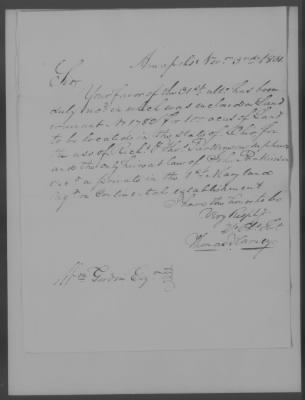 Annapolis Nov. 3rd 1804
Sir
Your favor of the 31st ulto. has been
duly rec'd in which was inclosed a Land
warrant N 1782 for 100 acres of Land
to be located in the state of Ohio for
the use of
and the only heir at law of John
a private in the 1st Maryland
Regt on Continental establishment
I have the honor to be
Very Respt
Yr Ob Set
Thomas Harney
Wm Gordon Esqr